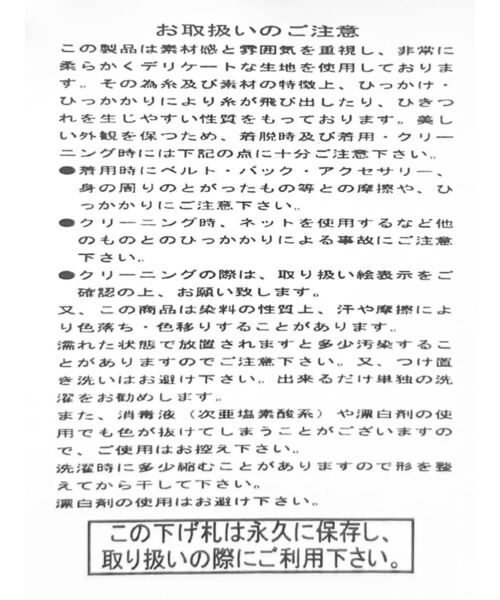 お取扱いのご注意
この製品は素材感と雰囲気を重視し、非常に
柔らかくデリケートな生地を使用しておりま
す。その為糸及び素材の特徴上、ひっかけ・
ひっかかりにより糸が飛び出したり、ひきつ
れを生じやすい性質をもっております。美し
い外観を保つため、着脱時及び着用・クリー
ニング時には下記の点に十分ご注意下さい。
●着用時にベルト・バック・アクセサリー、
身の周りのとがったもの等との摩擦や、ひ
っかかりにご注意下さい。
●クリーニング時、ネットを使用するなど他
のものとのひっかかりによる事故にご注意
下さい。
●クリーニングの際は、取り扱い絵表示をご
確認の上、お願い致します。
又、この商品は染料の性質上、汗や摩擦によ
り色落ち・色移りすることがあります。
濡れた状態で放置されますと多少汚染するこ
とがありますのでご注意下さい。又、つけ置
き洗いはお避け下さい。出来るだけ単独の洗
濯をお勧めします。
また、消毒液（次亜塩素酸系）や漂白剤の使
用でも色が抜けてしまうことがございますの
で、ご使用はお控え下さい。
洗濯時に多少縮むことがありますので形を整
えてから干して下さい。
漂白剤の使用はお避け下さい。
この下げ札は永久に保存し、
取り扱いの際にご利用下さい。